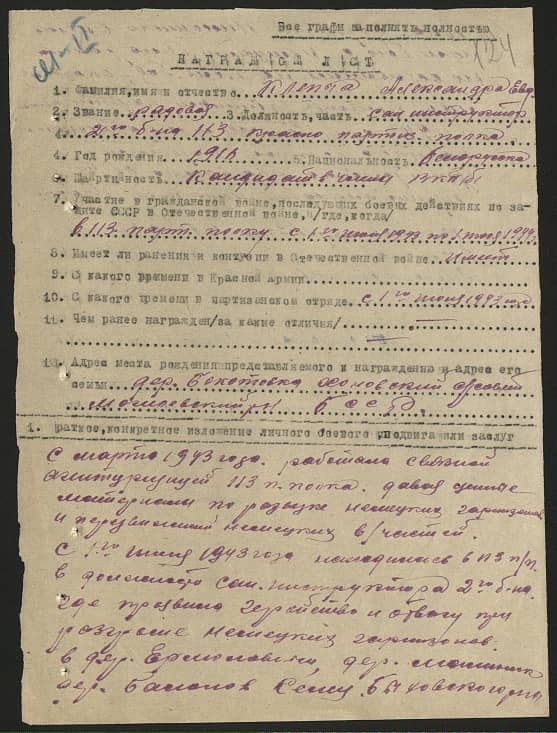 Все графы заполнять полностью
124
НАГРАДНОЙ ЛИСТ
1. Фамилия,имя и отчество Клепча Александра
2. Звание рядовой 3. Должность,часть сан инструктор
2го б-на 113 партиз полка.
4. Год рождения 1918 5. Национальность белоруска
6. Партийность Кандидат в члены ВКП/б/
7. Участие в гражданской войне,последующих боевых действиях по за-
щите СССР в Отечественной войне,/где,когда/
в 113 парт. полку с 1го июня 1943 по 1 июля 1944.
8. Имеет ли ранения и контузии в Отечественной войне. Имеет
9. С какого времени в Красной Армии
10. С какого времени в партизанском отряде. с 1го июня 1943 года
11. Чем ранее награжден/за какие отличия/ —
12. Адрес места рождения представляемого к награждению и адрес его
семьи дер.
БССР.
1. Краткое,конкретное изложение личного боевого подвига или заслуг
С марта 1943 года. работала связной
113 п. полка. давая ценные
материалы по разведке немецких гарнизонов
и передвижений немецких в/частей.
С 1го июня 1943 года находилась в 113 п/п.
в должности сан. инструктора 2го б-на.
где проявила геройство и отвагу при
разгроме немецких гарнизонов.
в дер. дер.
дер. Быховского р-на